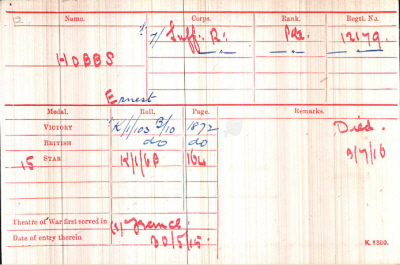 Name. Corps. Rank. Regtl. No.
HOBBS 7/Suff: R: Pte. 12179.
Ernest
Medal. Roll. Page. Remarks.
VICTORY K/1/103 B/10 1872 Died.
BRITISH do do 3/7/16
15 STAR K/1/6B 164
Theatre of War first served in (1) France.
Date of entry therein 30/5/15.
K. 1380.